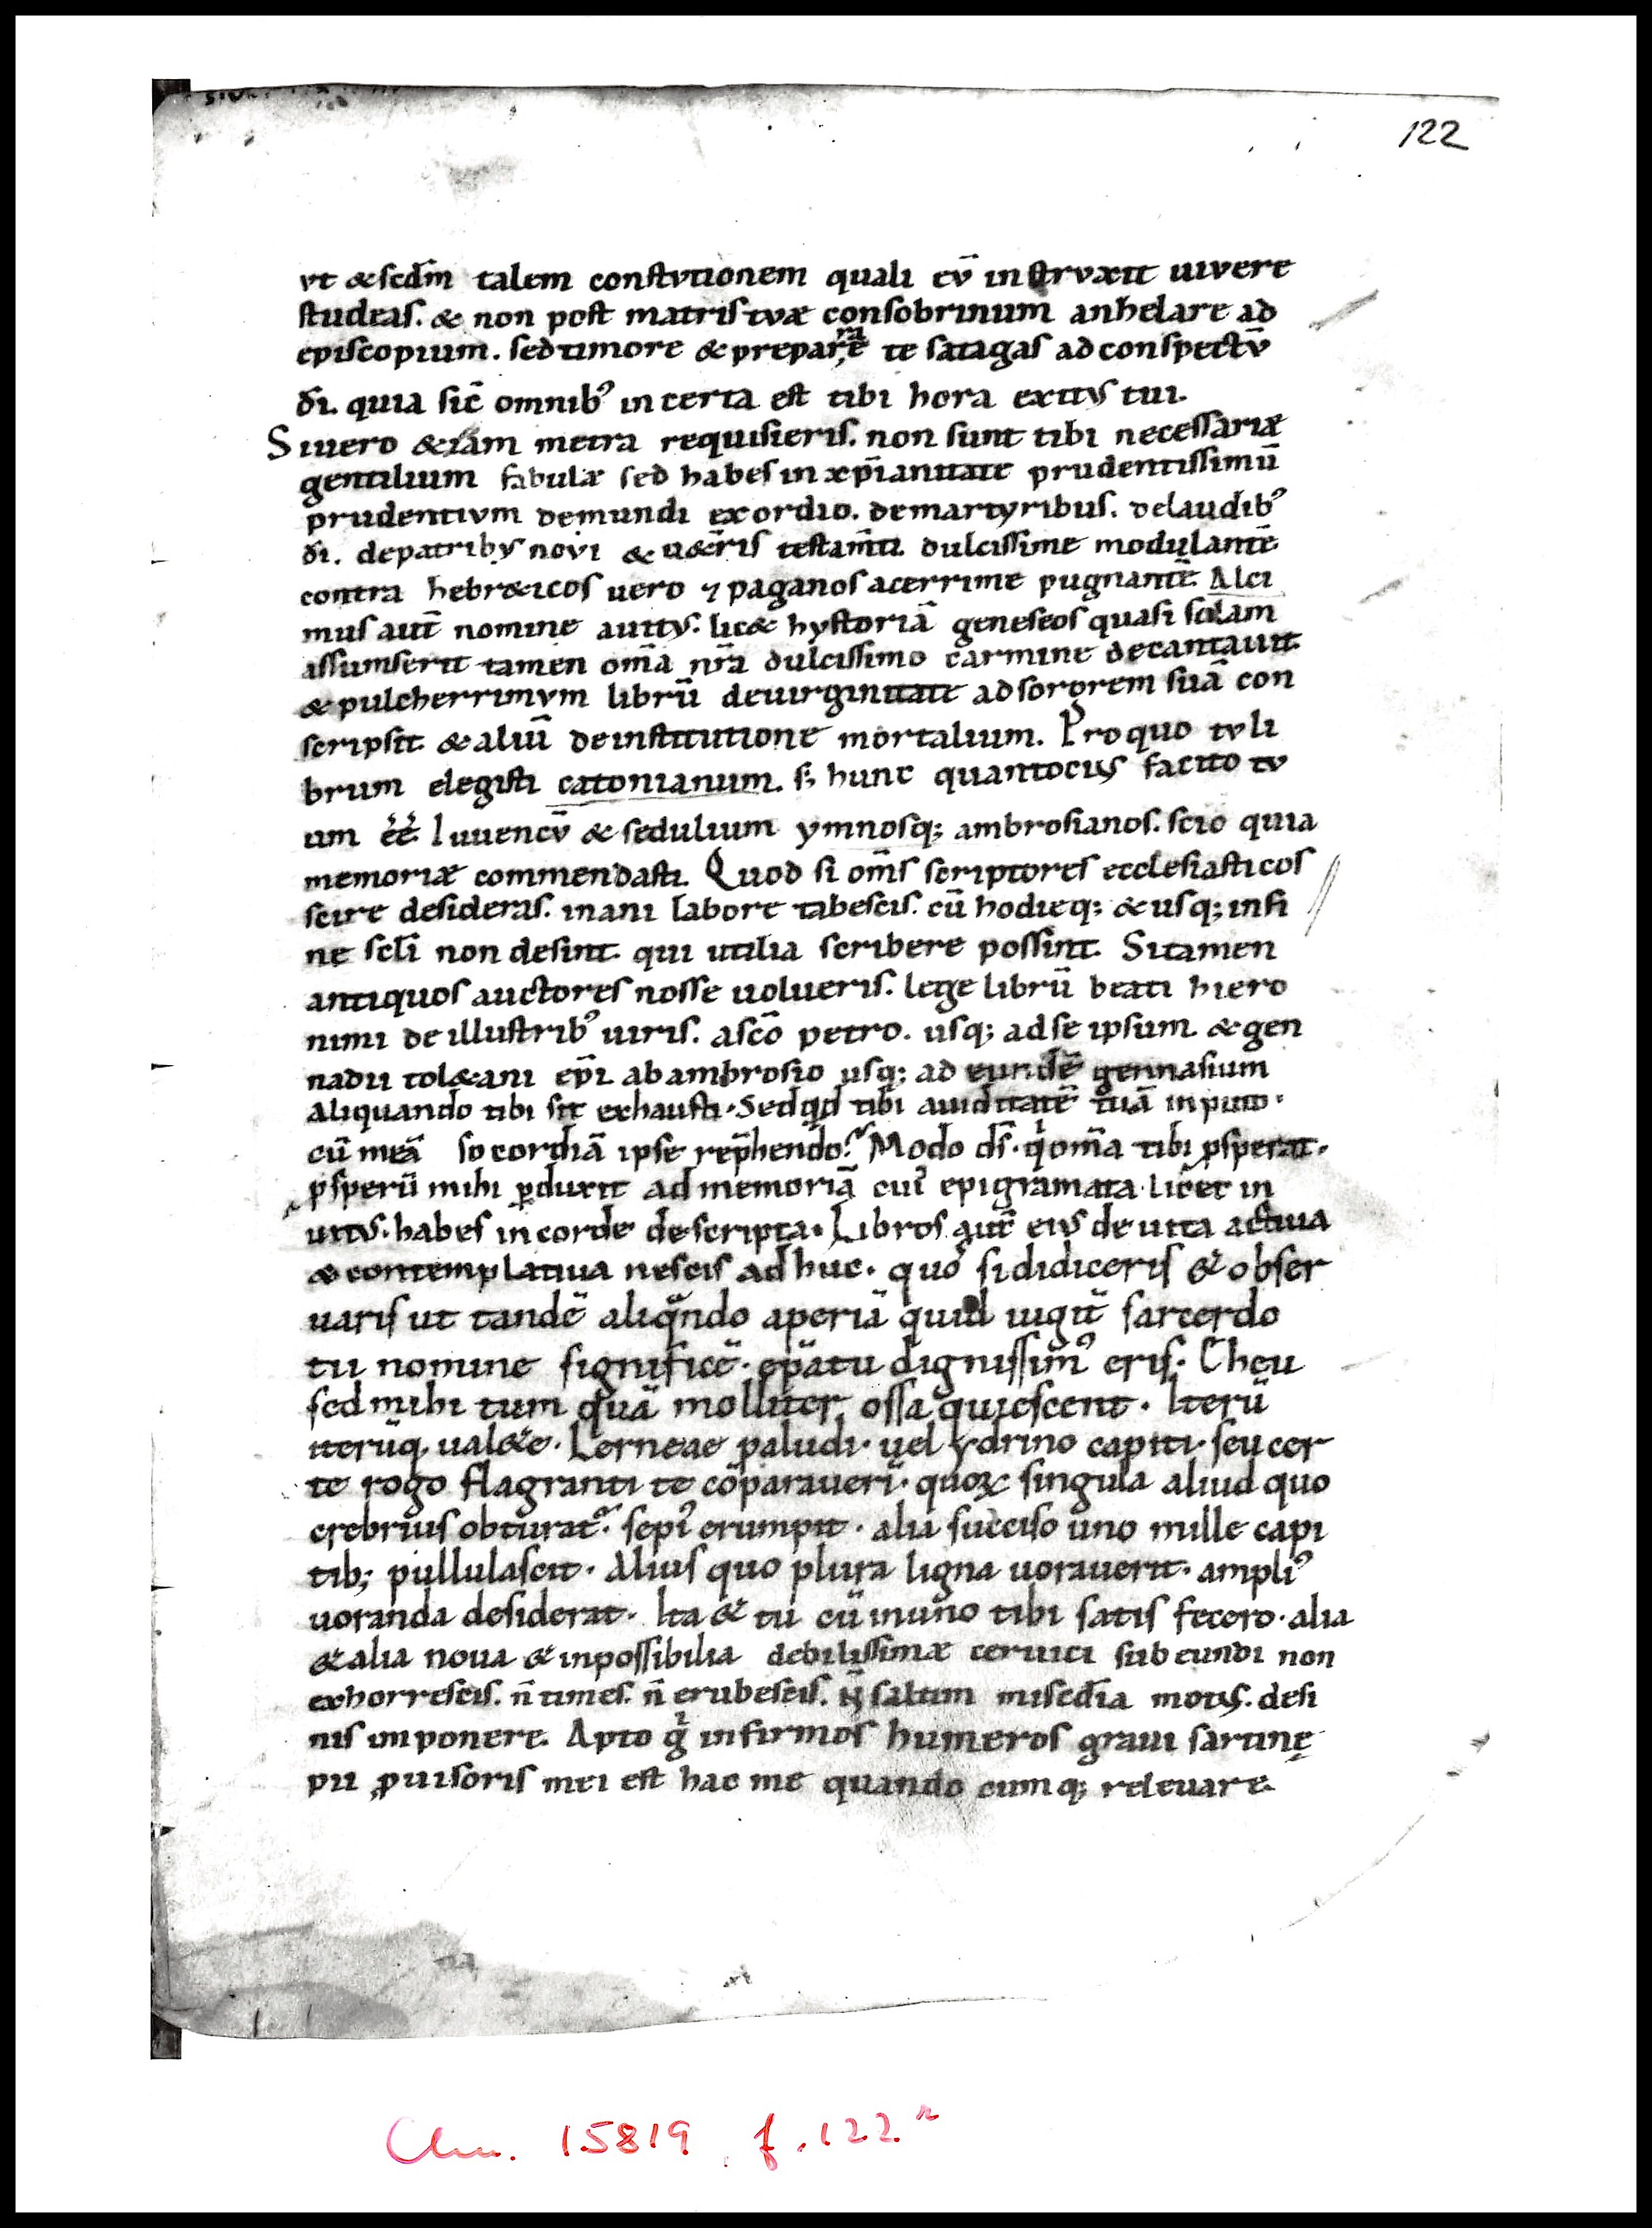 122
vt & scd̄m talem constvtionem quali cv̄ instrvxit vivere
studeas. & non post matris tvæ consobrinum anhelare ad
episcopium. sed timore & prepararē te satagas ad conspectv̄
d̄i. quia sic̄ omnibꝰ in certa est tibi hora exitvs tui.
Siuero & iam metra requisieris. non sunt tibi necessariæ
gentilium fabulæ sed habes in xp̄ianitate prudentissimū
prudentivm demundi exordio. demartyribus. delaudibꝰ
d̄i. depatribvs novi & u&̄ris testam̄ti. dulcissime modulantē.
contra hebr&icos uero ⁊ paganos acerrime pugnantē. Alci
mus aut̄ nomine auitvs. lic& hystoriā geneseos quasi solam
assumserit tamen om̄a nr̄a dulcissimo carmine decantauit.
& pulcherrimvm librū deuirginitate ad sororem suā con
scripsit. & aliū deinstitutione mortalium. Pro quo tv li
brum elegisti catonianum. s; hunc quantocius facito tv
um éé. Iuuencv̄ & sedulium ymnosq; ambrosianos. scio quia
memoriæ commendasti. Quod si om̄s scriptores ecclesiasticos
scire desideras. inani labore tabescis. cū hodieq; & usq; infi
ne scl̄i non desint. qui utilia scribere possint. Sitamen
antiquos auctores nosse uolueris. lege librū beati hiero
nimi de illustribꝰ uiris. asc̄o petro. usq; ad se ipsum. & gen
nadii tol&ani ep̄i. ab ambrosio usq; ad eundē gennasium
aliquando tibi sit exhausta. Sed qd tibi auiditatē tuā inputo.
cū meā socordiā ipse rep̄hendo. Modo d̄s. qͥ om̄a tibi ꝓsperat.
ꝓsperū mihi ꝑduxit ad memoriā cuiꝰ epigramata licet in
uitvs. habes in corde descripta. Libros aut̄ eivs de uita actiua
& contemplatiua nescis ad huc. quos̄ si didiceris & obser
uaris ut tandē aliqͣndo aperiā quid iugit̄ sarcerdo
tii nomine significē. ep̄atu dignissimꝰ eris. Eheu
sed mihi tum quā molliter ossa quiescent. Iterū
iterūq, ual&e. Lerneae paludi. uel ydrino capiti. seu cer
te rogo flagranti te cōparauerī. quoꝝ singula aliud quo
crebrius obturat̄. sepiꝰ erumpit. alia succiso uno mille capi
tib; pullulascit. Alius quo plura ligna uorauerit. ampliꝰ
uoranda desiderat. Ita & tu cū inuno tibi satis fecero. alia
& alia noua & inpossibilia debilissimæ ceruici subeundi non
exhorrescis. n̄ times. n̄ erubescis. N̄ saltim mised̄ia motus. desi
nis imponere. Apto gͥ infirmos humeros graui sarcinę
pii ꝓuisoris mei est hac me quando cumq; releuare.
Clm. 15819 f. 122r